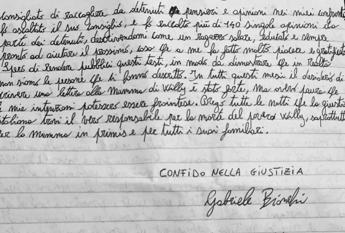 consigliato di raccogliere da detenuti pensieri e opinioni nei miei confronti.
Ho ascoltato il suo consiglio, e ho raccolto più di 140 singole opinioni da
parte dei detenuti, descrivendomi come un ragazzo solare, educato e sempre
pronto ad aiutare il prossimo, cosa che a me ha fatto molto piacere e gratificato.
Spero di rendere pubblici questi testi, in modo da dimostrare che in realtà
non siamo le persone che ci hanno descritto. In tutti questi mesi il desiderio di
scrivere una lettera alla Mamma di Willy è stato forte, ma avevo paura che
le mie intenzioni potessero essere fraintese. Prego tutte le notti che la giustizia
italiana trovi il vero responsabile per la morte del povero Willy, soprattutto
per la mamma in primis e per tutti i suoi familiari.
CONFIDO NELLA GIUSTIZIA
Gabriele Bianchi